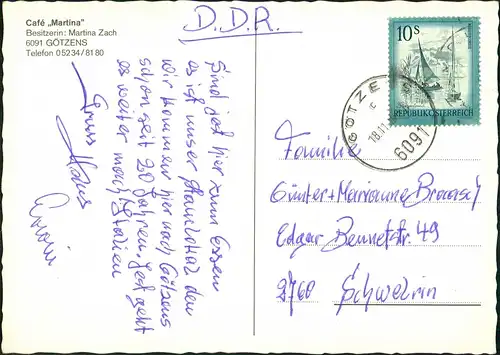 Café „Martina"
Besitzerin: Martina Zach
6091 GÖTZENS
Telefon 05234/8180
D.D.R.
Sind jetzt hier zum Essen
es ist unser Stammlokal den
wir kommen hier nach Götzens
schon seit 20 Jahren. Jetzt geht
es weiter nach Italien
Gruss Hans
10 S
REPUBLIK ÖSTERREICH
GÖTZENS
6091
Familie
Günter + Marianne
Edgar Bennetstr. 49
2760 Schwerin